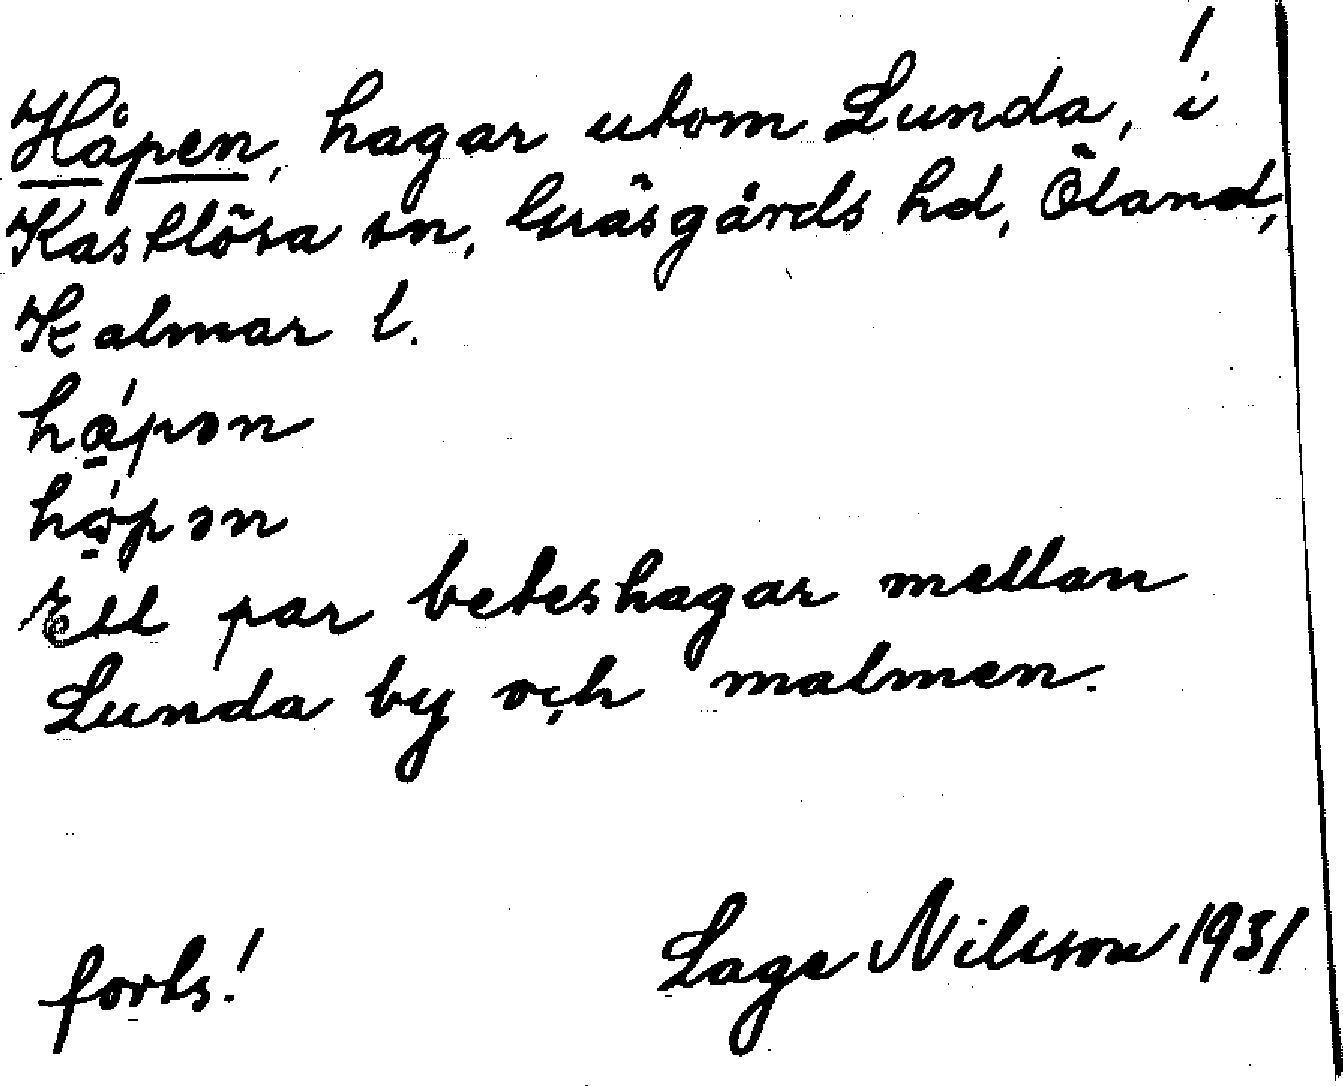 /
Håpen, hagar utom Lunda, i
Kastlösa sn, Gräsgårds hd, Öland,
Kalmar l.
hǻ̱pən
hǻ̱pən
Ett par beteshagar mellan
Lunda by och malmen.
forts! Lage Nilsson 1931